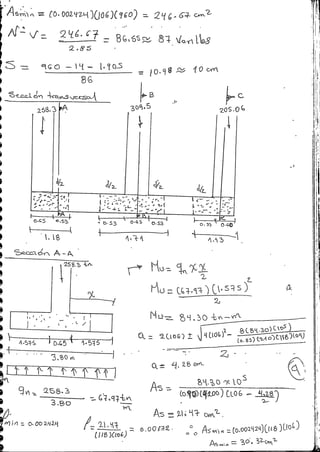 Asmin = (0.002424)(106)(960) = 246.67 cm2
Nº V = 246.67 / 2.85 = 86.55 ≈ 87 Varillas
S = 960 - 14 - 1.905 / 86 = 10.98 ≈ 10 cm
Sección transversal
258.3 A B 309.5 C 205.06
d/2 d/2 d/2 d/2
0.65 0.53 0.53 0.65 0.53 0.53 0.60
1.18 1.71 1.13
Sección A-A
258.3 tn
x
1.575 0.65 1.575
3.80 m
qn = 258.3 / 3.80 = 67.97 tn/m
Mu = qn x x/2
Mu = (67.97)(1.575)2 / 2
Mu = 84.30 tn-m
a = 2(106) ± √4(106)2 - 8(84.30)(105) / (0.85)(210)(118)(0.9) / 2
a = 4.28 cm
As = 84.30 x 105 / (0.9)(4200)(106 - 4.28/2)
As = 21.47 cm2
min = 0.002424
ρ = 21.47 / (118)(106) = 0.00172
∴ Asmin = (0.002424)(118)(106)
Asmin = 30.32 cm2